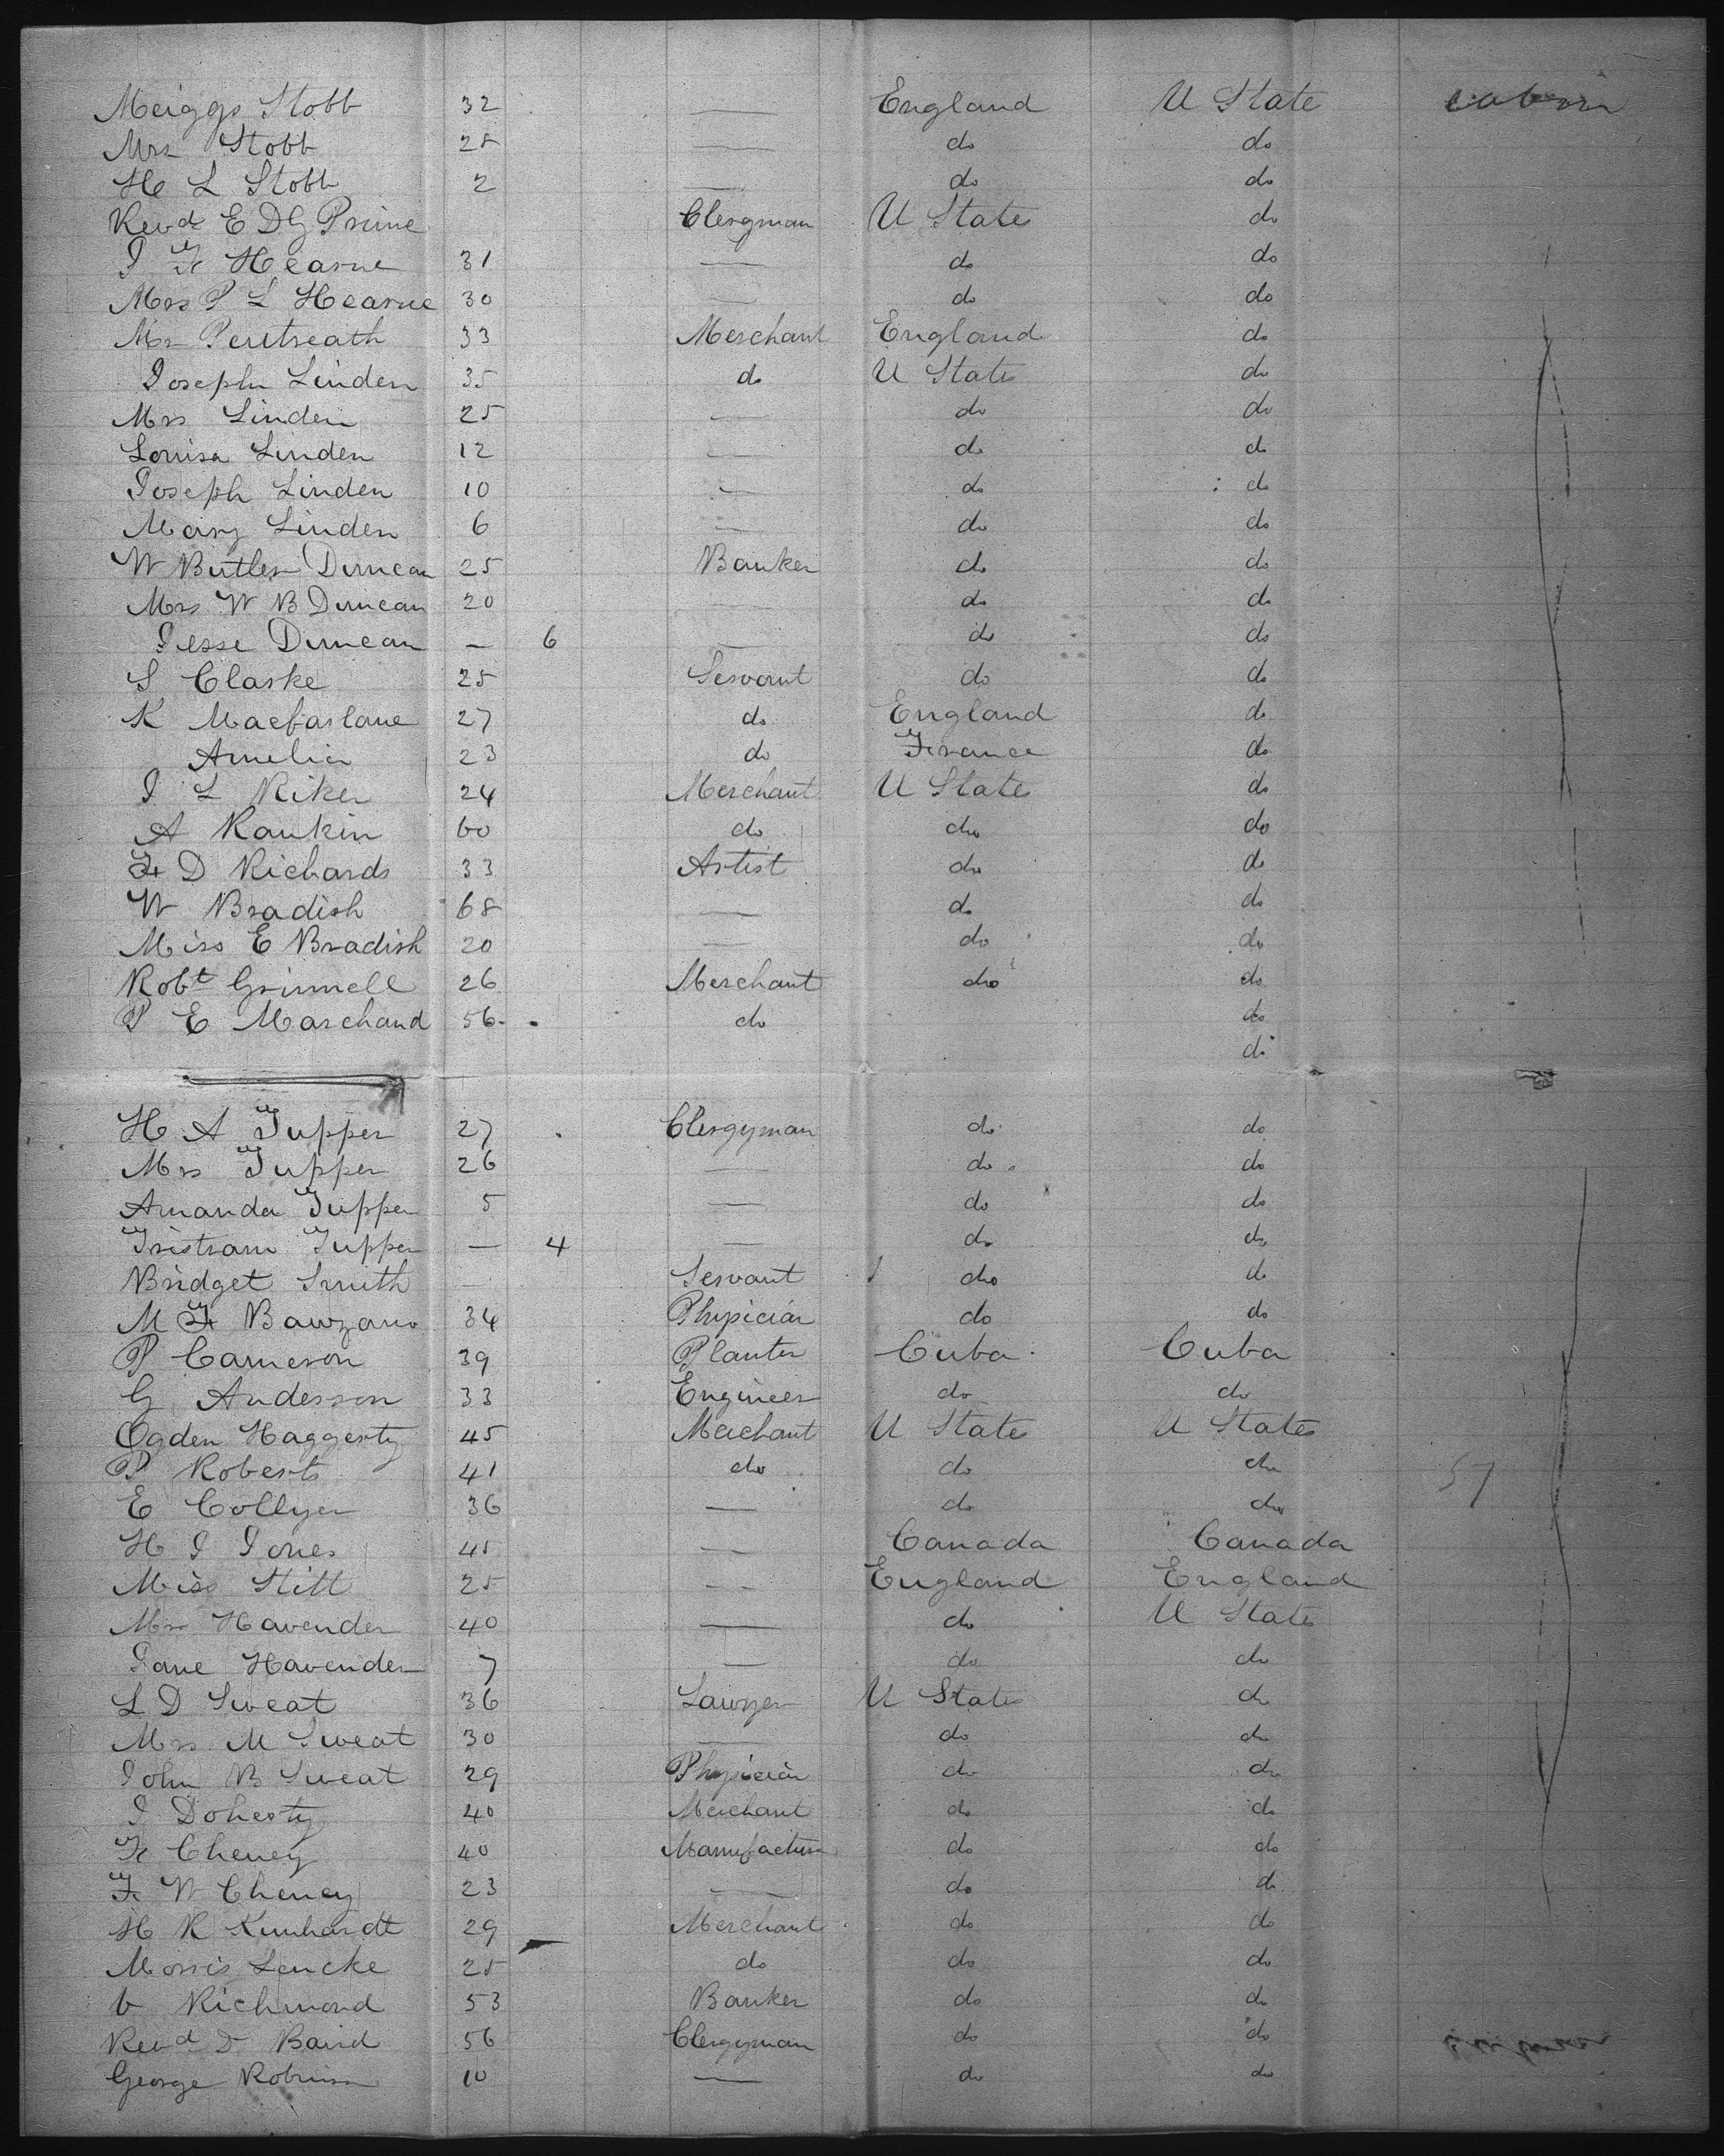 Meiggs Stobb 32 — England U State cabin
Mrs Stobb 28 — do do
H L Stobb 2 — do do
Revd E D G Prime Clergman U State do
J F Hearne 31 — do do
Mrs P L Hearne 30 — do do
Mr Pentreath 33 Merchant England do
Joseph Linden 35 do U State do
Mrs Linden 25 — do do
Louisa Linden 12 — do do
Joseph Linden 10 — do do
Mary Linden 6 — do do
W Butler Duncan 25 Banker do do
Mrs W B Duncan 20 do do
Jesse Duncan — 6 — do do
S Clarke 25 Servant do do
K Macfarlane 27 do England do
Amelia 23 do France do
J L Riker 24 Merchant U State do
A Rankin 60 do do do
F D Richards 33 Artist do do
W Bradish 68 — do do
Miss E Bradish 20 — do do
Robt Grinnell 26 Merchant do do
P E Marchand 56 do do
do
H A Tupper 27 Clergyman do do
Mrs Tupper 26 — do do
Amanda Tupper 5 — do do
Tristram Tupper — 4 — do do
Bridget Smith — Servant do do
M F 34 Physician do do
P Cameron 39 Planter Cuba Cuba
G Anderson 33 Engineer do do
Ogden Haggerty 45 Merchant U State U States
P Roberts 41 do do do 57
E Collyer 36 — do do
H J Jones 45 — Canada Canada
Miss Stitt 25 — England England
Mrs Havender 40 — do U State
Jane Havender 7 — do do
L D Sweat 36 Lawyer U State do
Mrs M Sweat 30 — do do
John B Sweat 29 Physician do do
J Doherty 40 Merchant do do
F Cheney 40 Manufacture do do
F W Cheney 23 — do do
H R Kunhardt 29 Merchant do do
Morris Lencke 25 do do do
Richmond 53 Banker do do
Revd Dr Baird 56 Clergyman do do
George Robinson 10 — do do